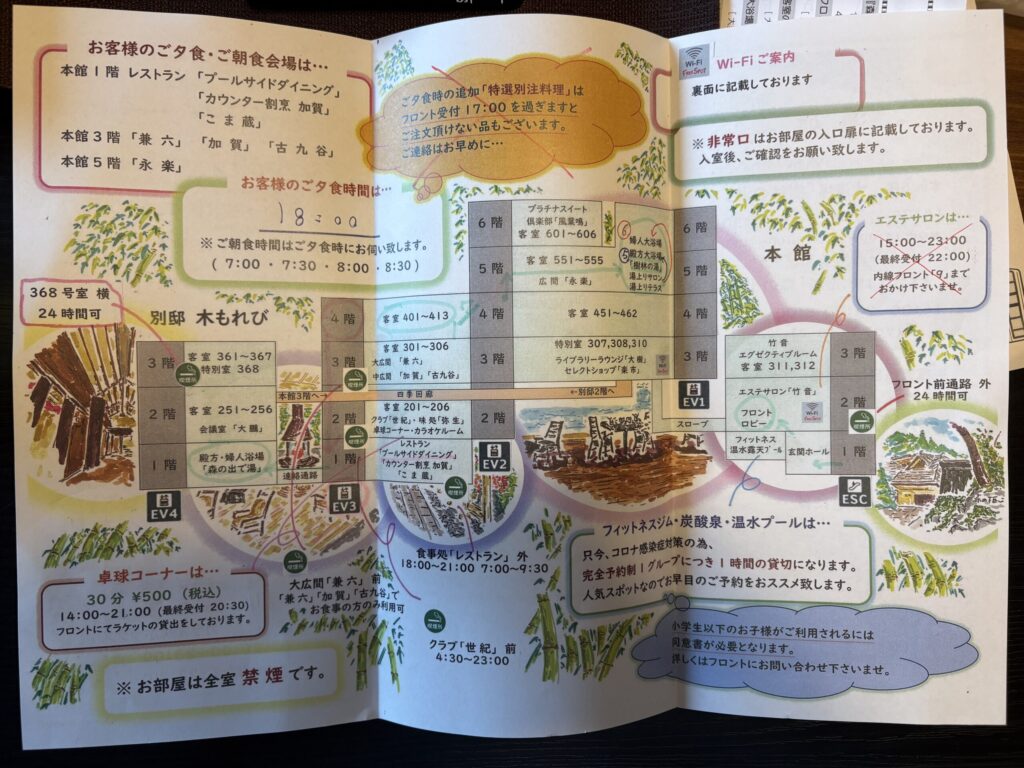 お客様のご夕食・ご朝食会場は…
本館1階 レストラン「プールサイドダイニング」
「カウンター割烹 加賀」
「こま蔵」
本館3階「兼六」 「加賀」 「古九谷」
本館5階「永楽」
お客様のご夕食時間は…
18:00
※ご朝食時間はご夕食時にお伺い致します。
(7:00・7:30・8:00・8:30)
ご夕食時の追加「特選別注料理」は
フロント受付17:00を過ぎますと
ご注文頂けない品もございます。
ご連絡はお早めに…
Wi-Fi
FREE SPOT
Wi-Fiご案内
裏面に記載しております
※非常口はお部屋の入口扉に記載しております。
入室後、ご確認をお願い致します。
エステサロンは…
15:00~23:00
(最終受付 22:00)
内線フロント「9」まで
おかけ下さいませ。
368号室 横
24時間可
別邸 木もれび
3階
客室 361~367
特別室 368
喫煙所
2階
客室 251~256
会議室「大鵬」
1階
殿方・婦人浴場
「森の出で湯」
EV4
本館3階へ→
連絡通路
EV3
4階
客室 401~413
3階
客室 301~306
大広間「兼六」
中広間「加賀」「古九谷」
喫煙所
四季回廊
←別邸2階へ
2階
客室 201~206
クラブ「世紀」・味処「弥生」
卓球コーナー・カラオケルーム
2階
喫煙所
1階
レストラン
「プールサイドダイニング」
「カウンター割烹 加賀」
「こま蔵」
EV2
本館
6階
プラチナスイート
倶楽部「風葉鳴」
客室 601~606
⑥
婦人大浴場
6階
5階
客室 551~555
広間「永楽」
⑤
殿方大浴場
「樹林の湯」
湯上りサロン
湯上りテラス
5階
4階
客室 451~462
4階
3階
特別室 307,308,310
ライブラリーラウンジ「大樹」
セレクトショップ「楽市」
Wi-Fi
3階
EV1
スロープ
竹音
エグゼクティブルーム
客室 311,312
3階
エステサロン「竹音」
フロント
ロビー
Wi-Fi
2階
喫煙所
フィットネス
温水露天プール
玄関ホール
1階
ESC
フロント前通路 外
24時間可
喫煙所
食事処「レストラン」外
18:00~21:00 7:00~9:30
喫煙所
大広間「兼六」前
「兼六」「加賀」「古九谷」で
お食事の方のみ利用可
喫煙所
クラブ「世紀」前
4:30~23:00
卓球コーナーは…
30分 ¥500(税込)
14:00~21:00(最終受付 20:30)
フロントにてラケットの貸出をしております。
※お部屋は全室禁煙です。
フィットネスジム・炭酸泉・温水プールは…
只今、コロナ感染症対策の為、
完全予約制1グループにつき1時間の貸切になります。
人気スポットなのでお早目のご予約をおススメ致します。
小学生以下のお子様がご利用されるには
同意書が必要となります。
詳しくはフロントにお問い合わせ下さいませ。